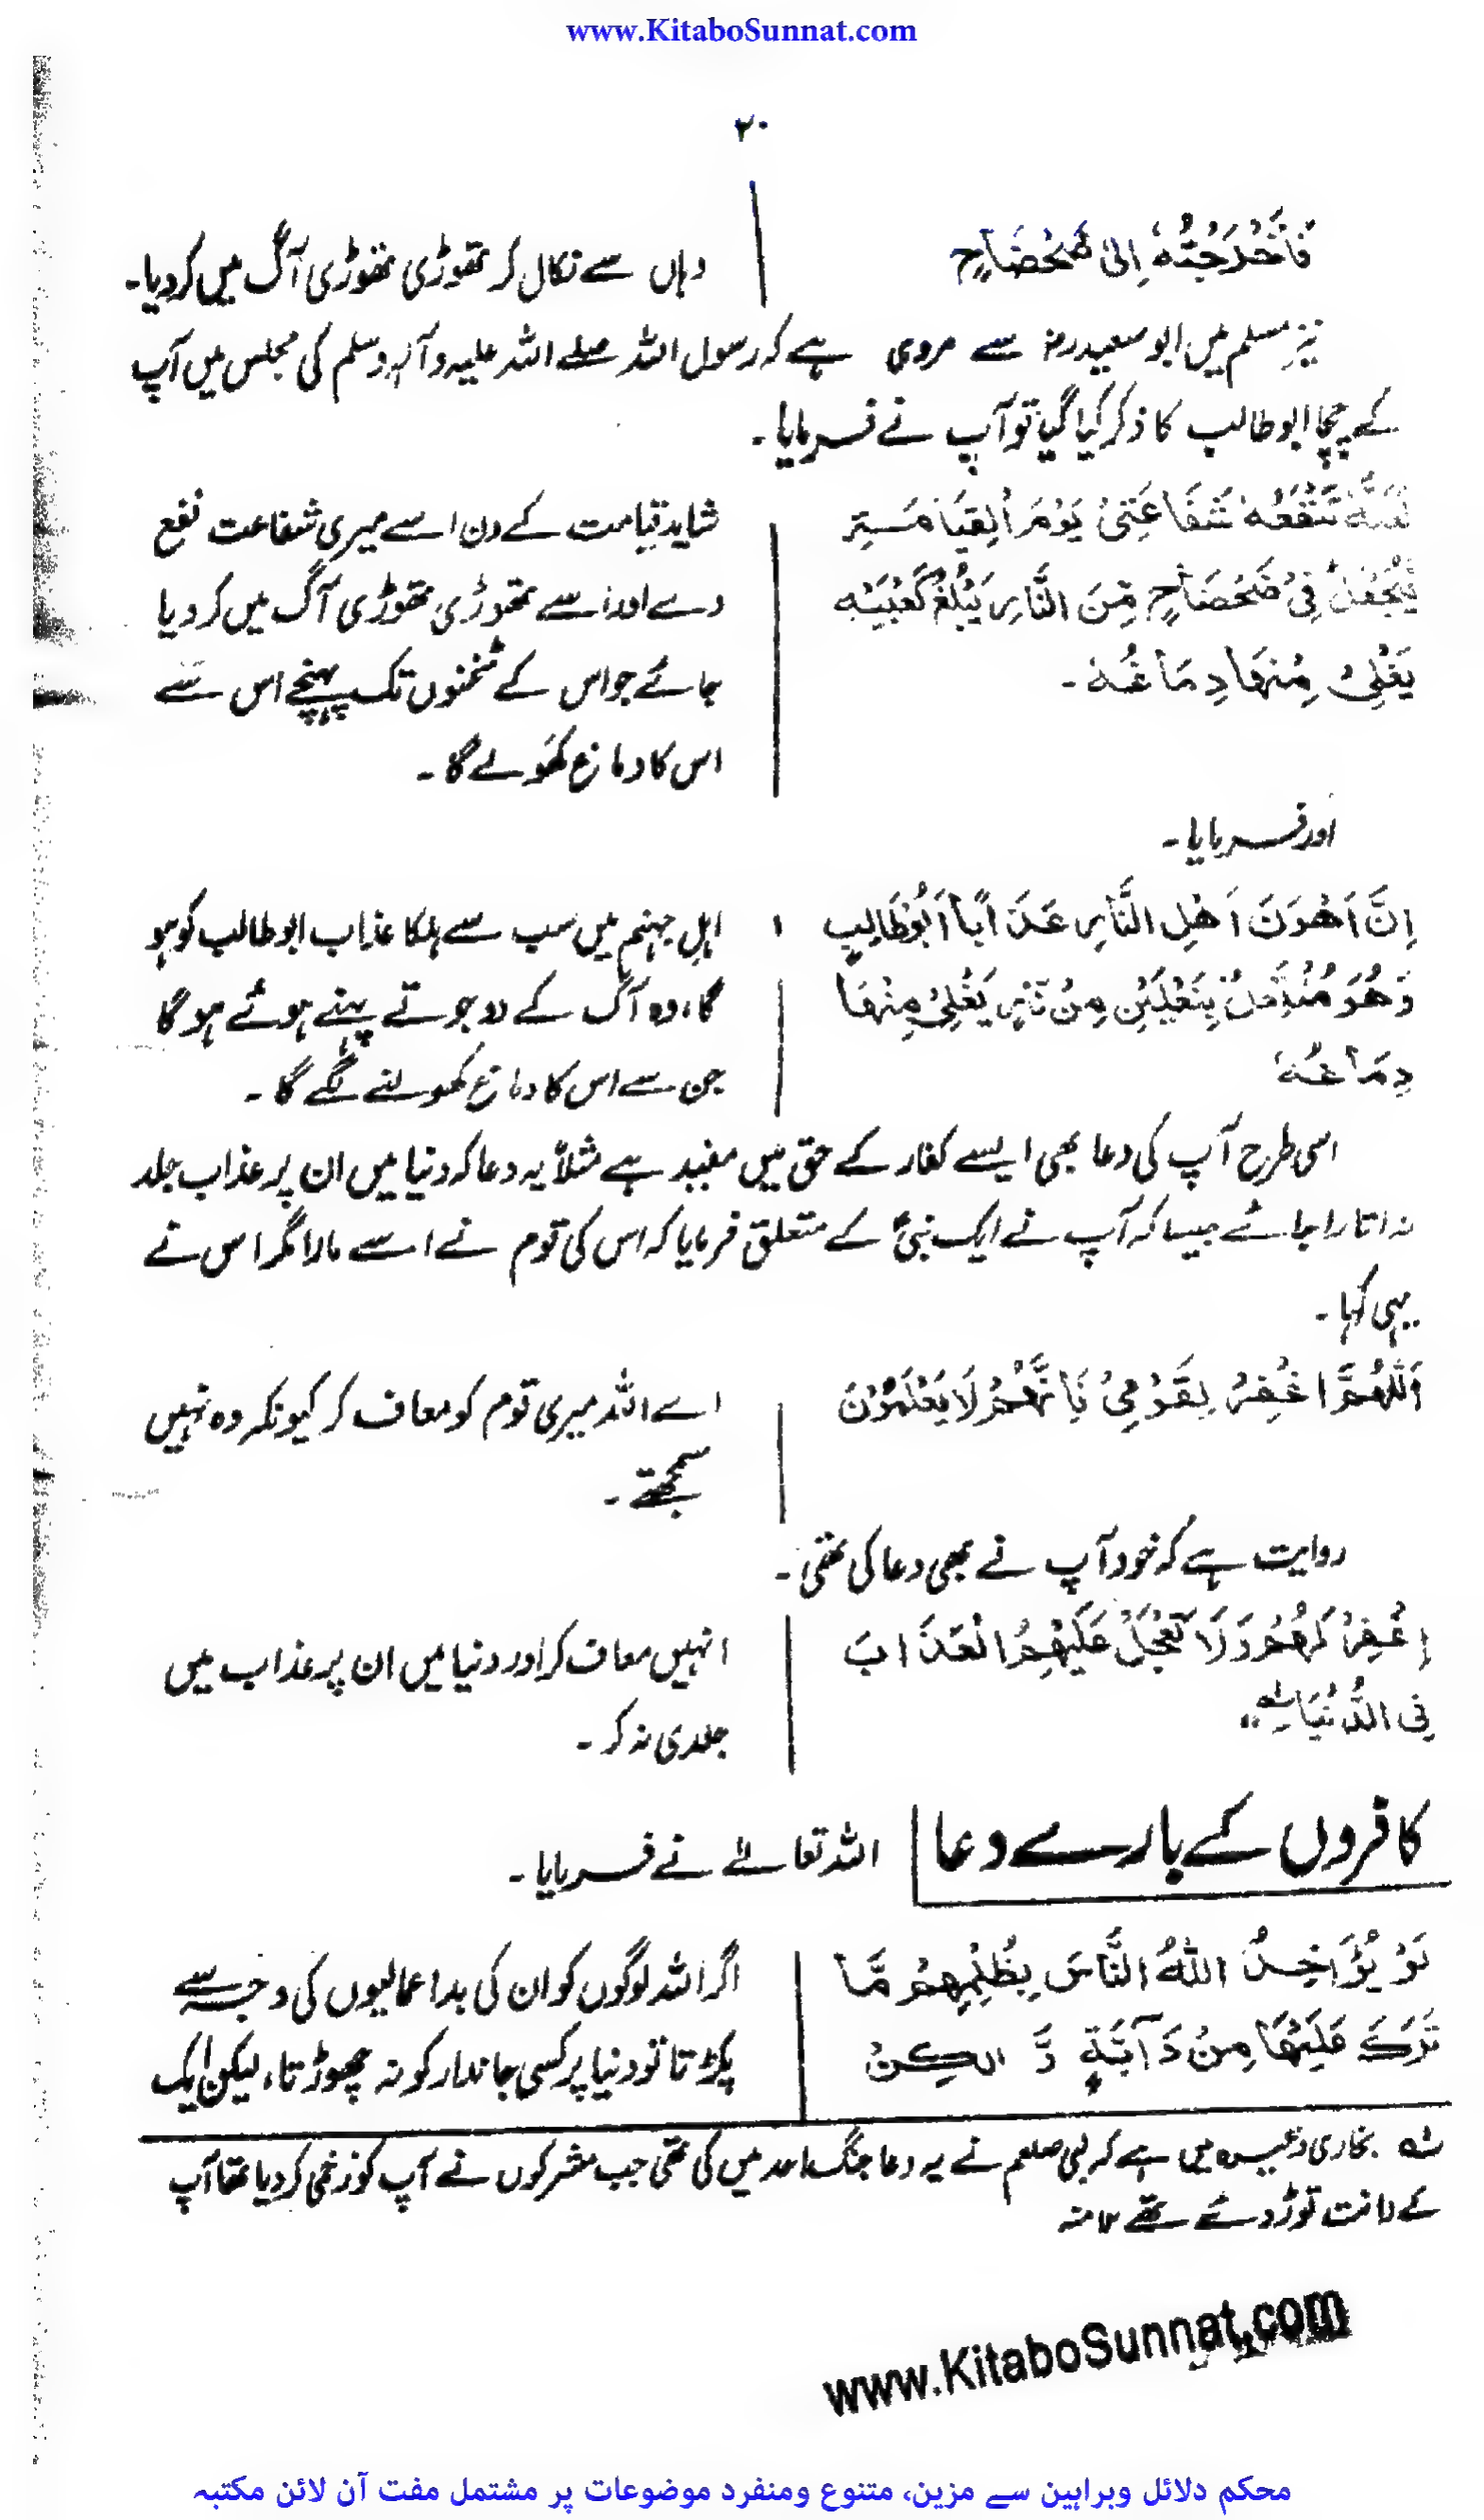 www.KitaboSunnat.com
۲۰
فَاَخْرَجْتُهٗ اِلىٰ ضَحْضَاحٍ
وہاں سے نکال کر تھوڑی تھوڑی آگ میں کر دیا۔
نیز مسلم میں ابو سعیدؓ سے مروی ہے کہ رسول اللہ صلے اللہ علیہ وآلہٖ وسلم کی مجلس میں آپ
کے چچا ابو طالب کا ذکر کیا گیا تو آپ نے فرمایا۔
لَعَلَّهٗ تَنْفَعُهٗ شَفَاعَتِىْ يَوْمَ الْقِيَامَةِ
شاید قیامت کے دن اسے میری شفاعت نفع
فَيُجْعَلُ فِىْ ضَحْضَاحٍ مِّنَ النَّارِ يَبْلُغُ كَعْبَيْهِ
دے اور اسے تھوڑی تھوڑی آگ میں کر دیا
يَغْلِىْ مِنْهَا دِمَاغُهٗ۔
جائے جو اس کے ٹخنوں تک پہنچے اس سے
اس کا دماغ کھولے گا۔
اور فرمایا۔
اِنَّ اَهْوَنَ اَهْلِ النَّارِ عَذَابًا اَبُوْطَالِبٍ
اہلِ جہنم میں سب سے ہلکا عذاب ابو طالب کو ہو
وَهُوَ مُنْتَعِلٌ بِنَعْلَيْنِ مِنْ نَّارٍ يَغْلِىْ مِنْهَا
گا، وہ آگ کے دو جوتے پہنے ہوئے ہو گا
دِمَاغُهٗ
جن سے اس کا دماغ کھولنے لگے گا۔
اسی طرح آپ کی دعا بھی ایسے کفار کے حق میں مفید ہے مثلاً یہ دعا کہ دنیا میں ان پر عذاب جلد
نہ اتارا جائے جیسا کہ آپ نے ایک نبیؑ کے متعلق فرمایا کہ اس کی قوم نے اسے مارا مگر اس نے
یہی کہا۔
اَللّٰهُمَّ اغْفِرْ لِقَوْمِىْ فَاِنَّهُمْ لَا يَعْلَمُوْنَ
اے اللہ میری قوم کو معاف کر کیونکہ وہ نہیں
سمجھتے۔
روایت ہے کہ خود آپ نے بھی دعا کی تھی۔
اِغْفِرْ لَهُمْ وَلَا تُعَجِّلْ عَلَيْهِمُ الْعَذَابَ
انہیں معاف کر اور دنیا میں ان پر عذاب میں
فِى الدُّنْيَا لہ
جلدی نہ کر۔
کافروں کے بارے دعا
اللہ تعالےٰ نے فرمایا۔
لَوْ يُؤَاخِذُ اللّٰهُ النَّاسَ بِظُلْمِهِمْ مَّا
اگر اللہ لوگوں کو ان کی بداعمالیوں کی وجہ سے
تَرَكَ عَلَيْهَا مِنْ دَآبَّةٍ وَّ لٰكِنْ
پکڑتا تو دنیا پر کسی جاندار کو نہ چھوڑتا، لیکن ایک
لہ بخاری وغیرہ میں ہے کہ نبی صلعم نے یہ دعا جنگ احد میں کی تھی جب مشرکوں نے آپ کو زخمی کر دیا تھا آپ
کے دانت توڑ دئے تھے ۱۲ منہ
www.KitaboSunnat.com
محکم دلائل وبراہین سے مزین، متنوع ومنفرد موضوعات پر مشتمل مفت آن لائن مکتبہ